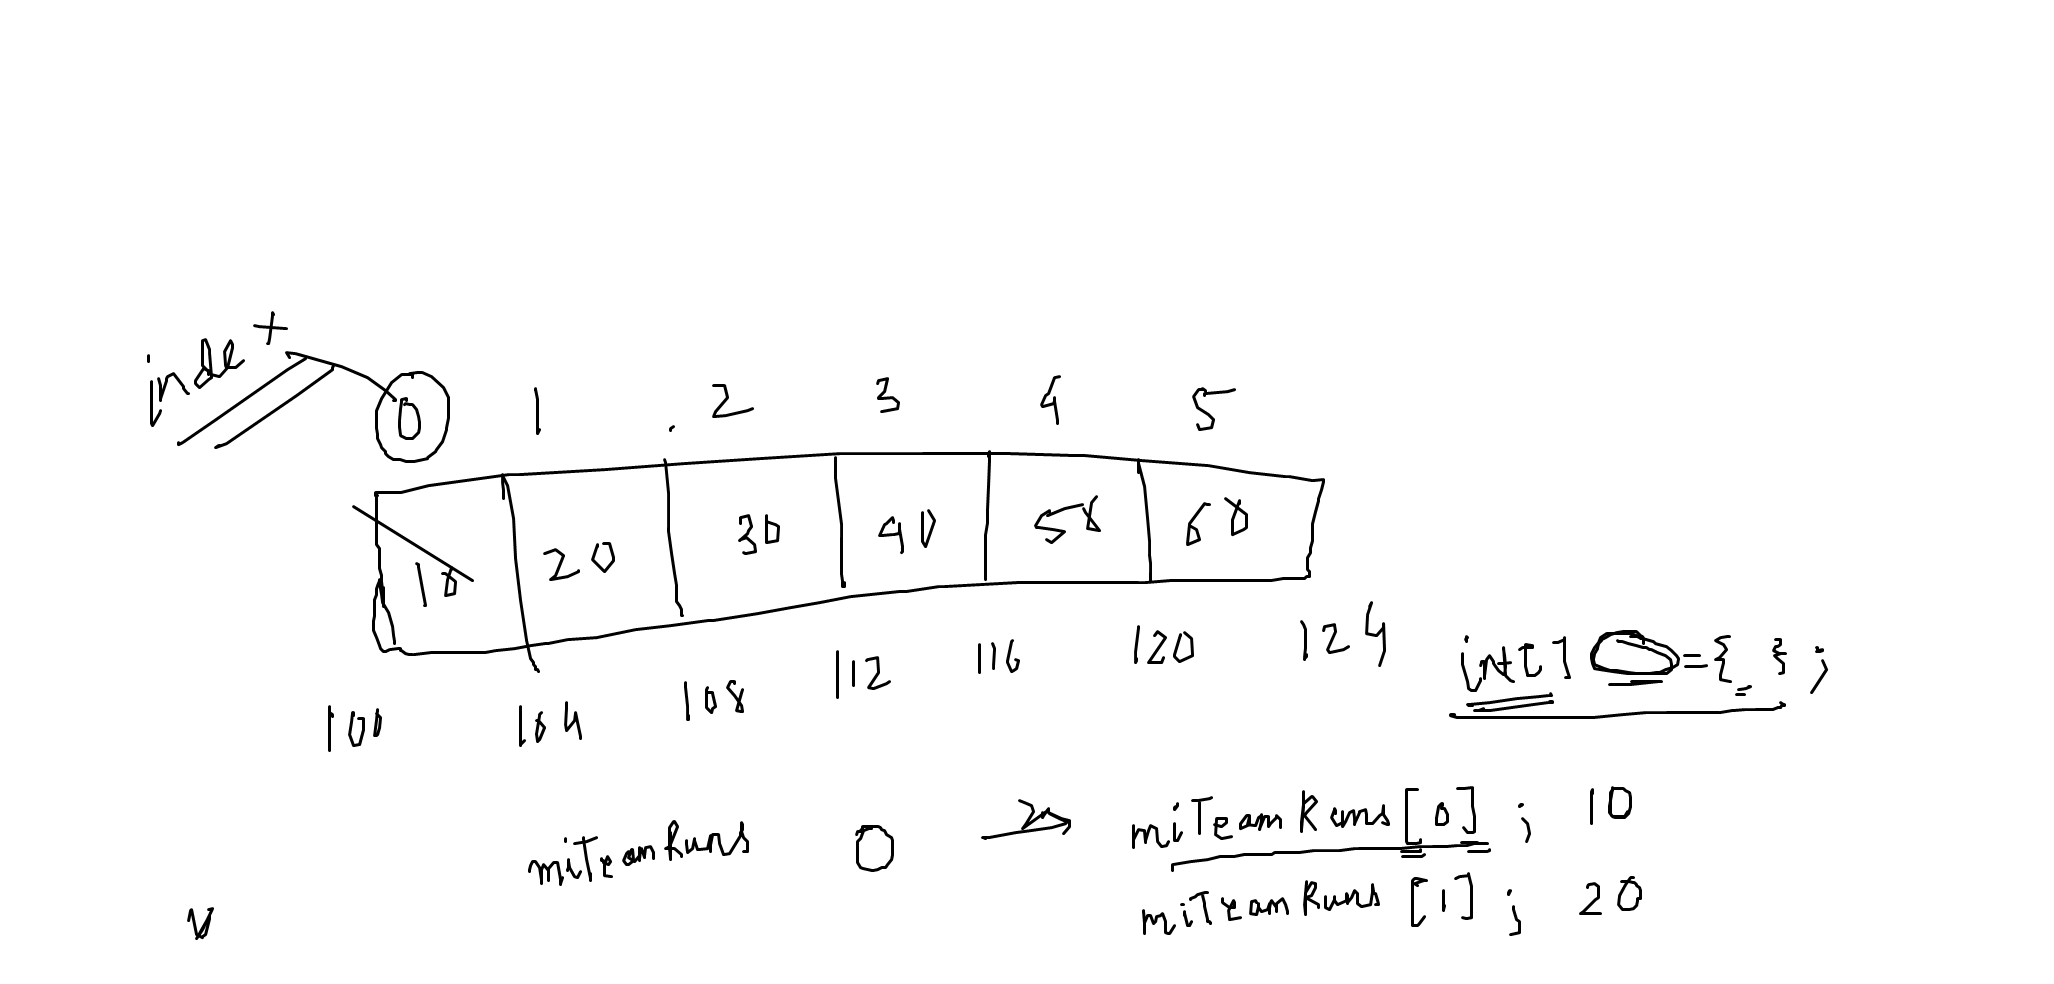 index
0 1 2 3 4 5
10 20 30 40 50 60
100 104 108 112 116 120 124
int[] = { };
miTeamRuns 0 → miTeamRuns[0]; 10
miTeamRuns[1]; 20